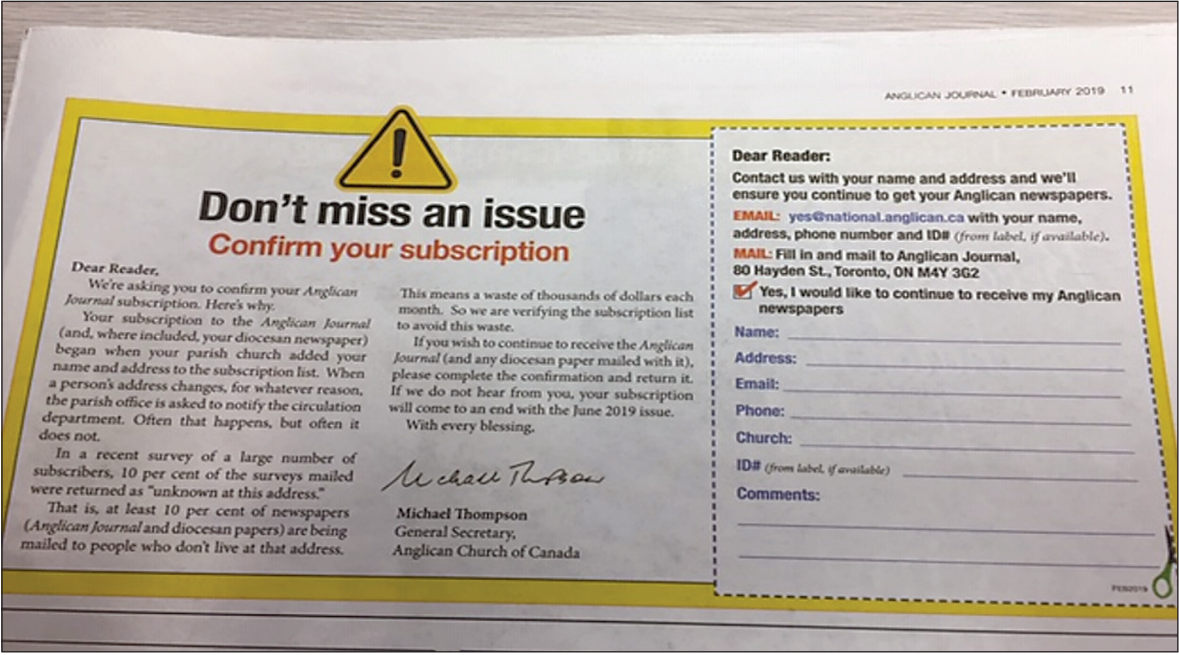 ANGLICAN JOURNAL • FEBRUARY 2019 11
!
Don't miss an issue
Confirm your subscription
Dear Reader,
We're asking you to confirm your Anglican
Journal subscription. Here's why.
Your subscription to the Anglican Journal
(and, where included, your diocesan newspaper)
began when your parish church added your
name and address to the subscription list. When
a person's address changes, for whatever reason,
the parish office is asked to notify the circulation
department. Often that happens, but often it
does not.
In a recent survey of a large number of
subscribers, 10 per cent of the surveys mailed
were returned as "unknown at this address."
That is, at least 10 per cent of newspapers
(Anglican Journal and diocesan papers) are being
mailed to people who don't live at that address.
This means a waste of thousands of dollars each
month. So we are verifying the subscription list
to avoid this waste.
If you wish to continue to receive the Anglican
Journal (and any diocesan paper mailed with it),
please complete the confirmation and return it.
If we do not hear from you, your subscription
will come to an end with the June 2019 issue.
With every blessing,
Michael Thompson
Michael Thompson
General Secretary,
Anglican Church of Canada
Dear Reader:
Contact us with your name and address and we'll
ensure you continue to get your Anglican newspapers.
EMAIL: yes@national.anglican.ca with your name,
address, phone number and ID# (from label, if available).
MAIL: Fill in and mail to Anglican Journal,
80 Hayden St., Toronto, ON M4Y 3G2
Yes, I would like to continue to receive my Anglican
newspapers
Name:
Address:
Email:
Phone:
Church:
ID# (from label, if available)
Comments:
FEB2019